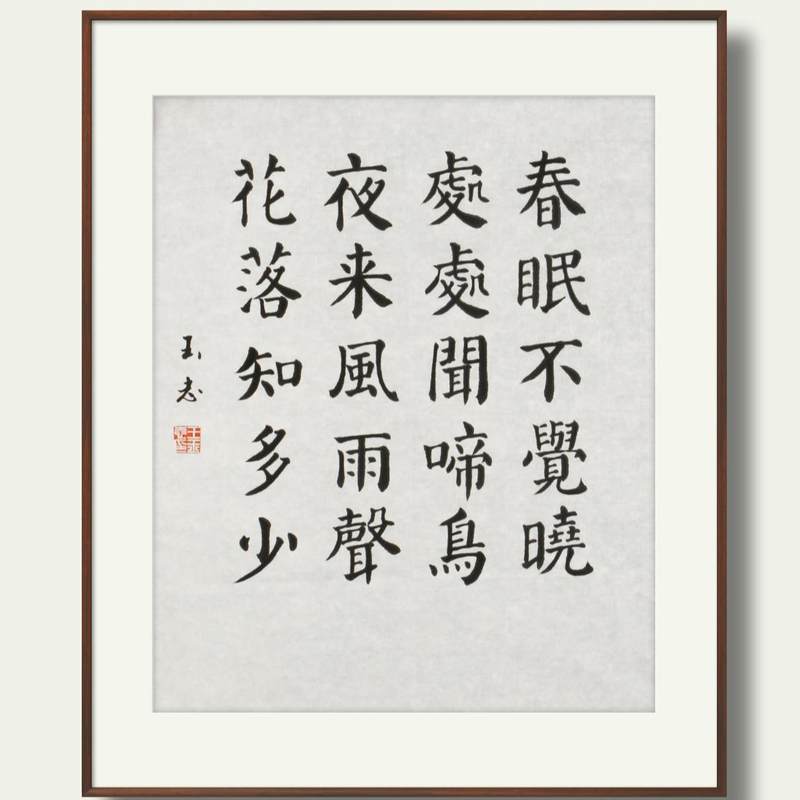 春眠不覺曉
處處聞啼鳥
夜来風雨聲
花落知多少
玉志